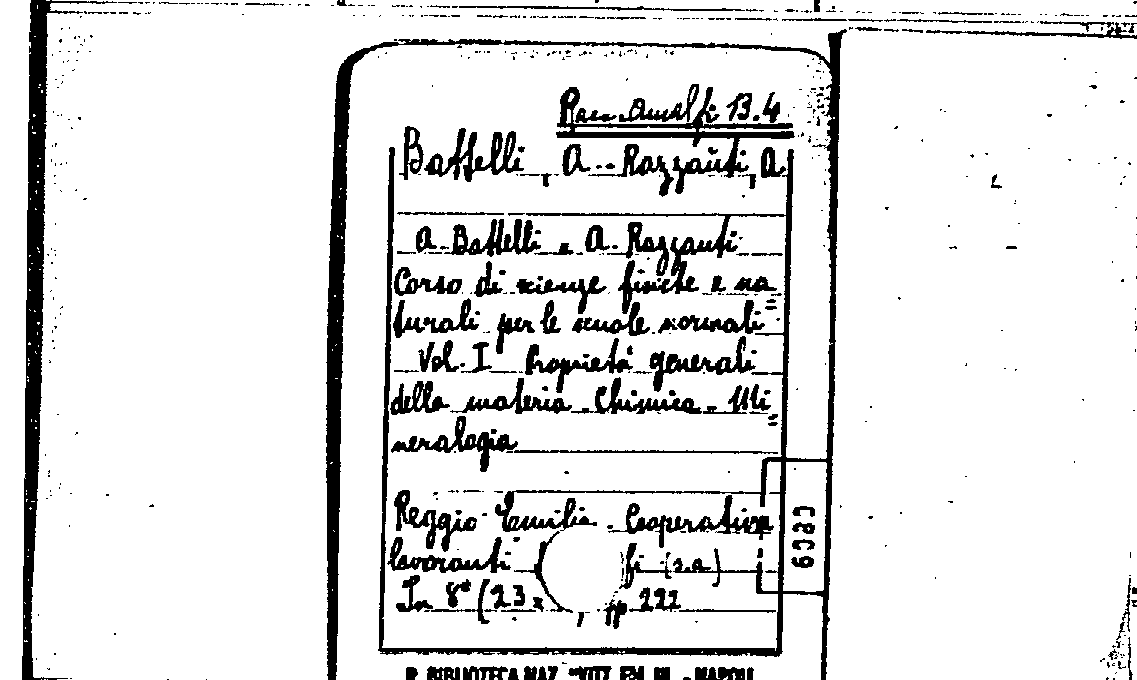 Racc. Amalfi 13.4
Battelli, A. - Razzauti, A.
A. Battelli e A. Razzauti
Corso di scienze fisiche e na=
turali per le scuole normali
Vol. I Proprietà generali
della materia - Chimica - Mi=
neralogia
Reggio Emilia - Cooperativa
lavoranti fi (s.a)
In 8° (23 x , pp 222
R. BIBLIOTECA NAZ. "VITT. EM. III. - NAPOLI